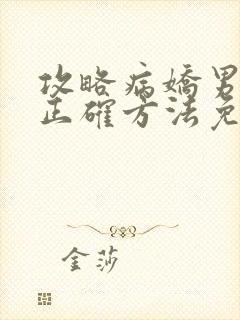 攻略病嬌男
正確方法免
金莎